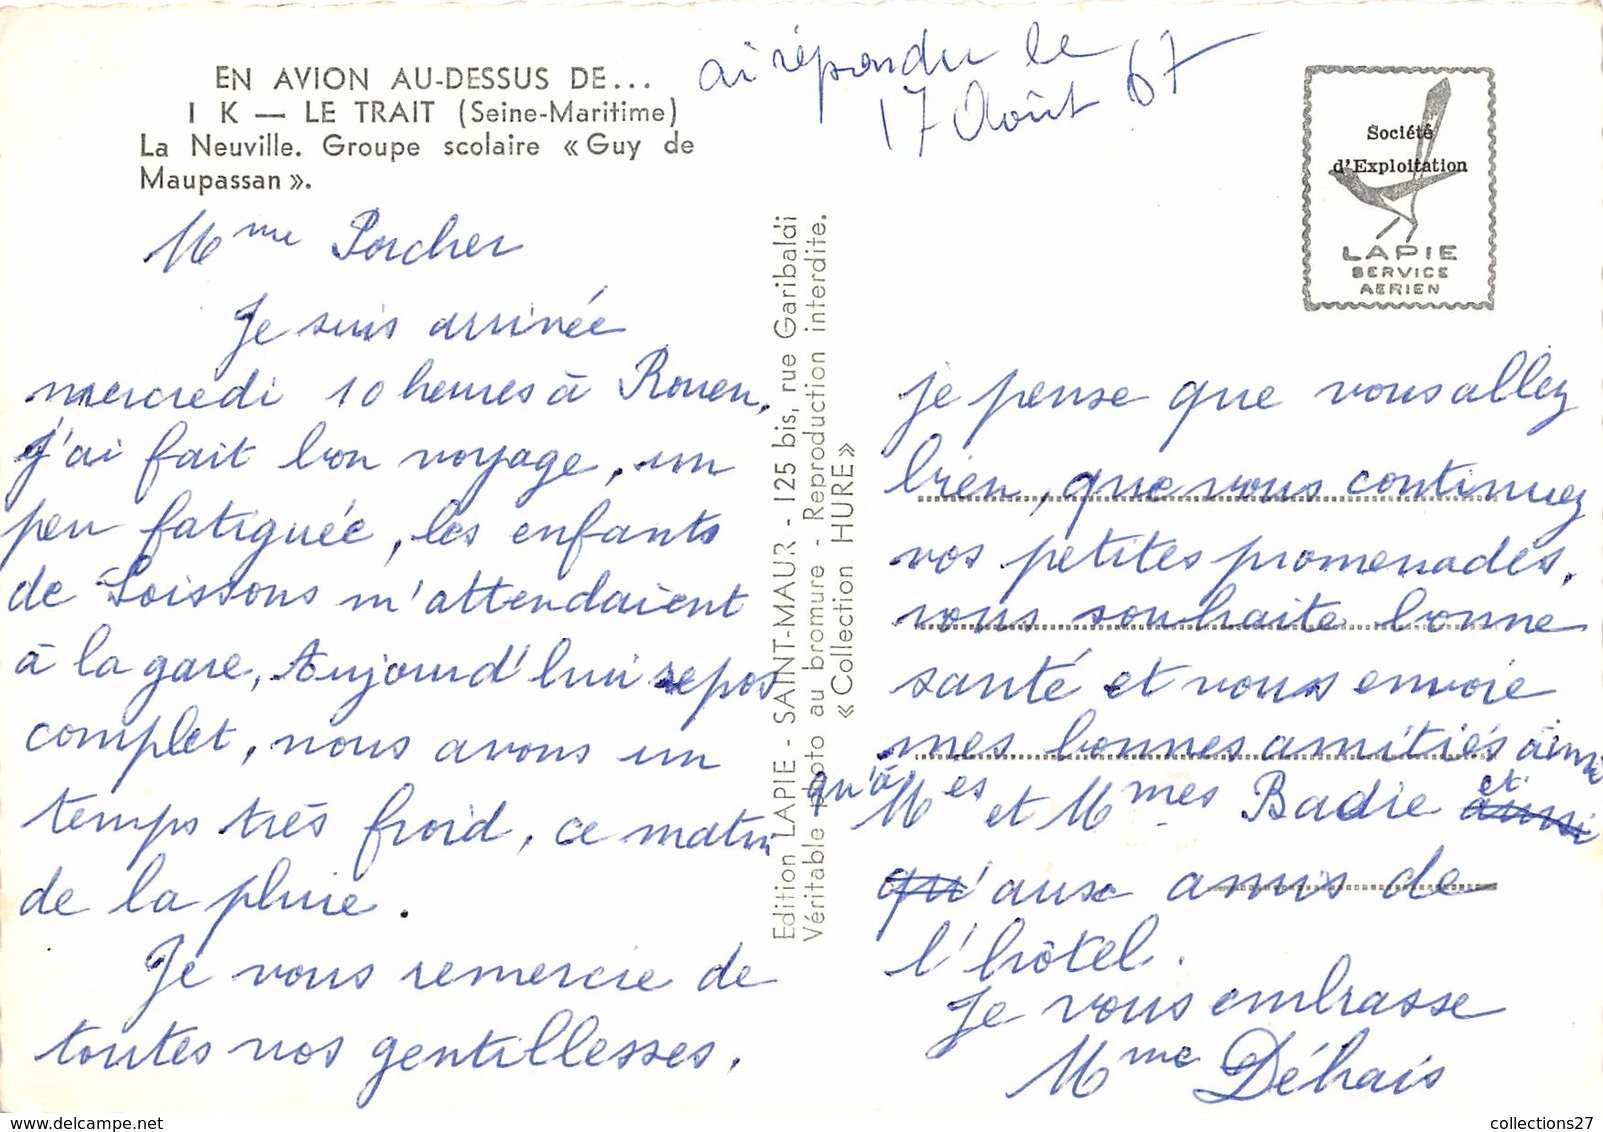 EN AVION AU-DESSUS DE...
I K — LE TRAIT (Seine-Maritime)
La Neuville. Groupe scolaire « Guy de
Maupassan ».
ai répondu le
17 Août 67
Société
d'Exploitation
LAPIE
SERVICE
AERIEN
Mme Porcher
Je suis arrivée
mercredi 10 heures à Rouen,
j'ai fait bon voyage, un
peu fatiguée, les enfants
de Soissons m'attendaient
à la gare, Aujourd'hui repos
complet, nous avons un
temps très froid, ce matin
de la pluie.
Je vous remercie de
toutes vos gentillesses.
Edition LAPIE - SAINT-MAUR - 125 bis, rue Garibaldi
Véritable photo au bromure - Reproduction interdite.
« Collection HURE »
je pense que vous allez
bien, que vous continuez
vos petites promenades.
vous souhaite bonne
santé et vous envoie
mes bonnes amitiés ainsi
qu'à Mes et Mmes Badie et aussi
qu'aux amis de
l'hôtel.
Je vous embrasse
Mme Déhais
collections27